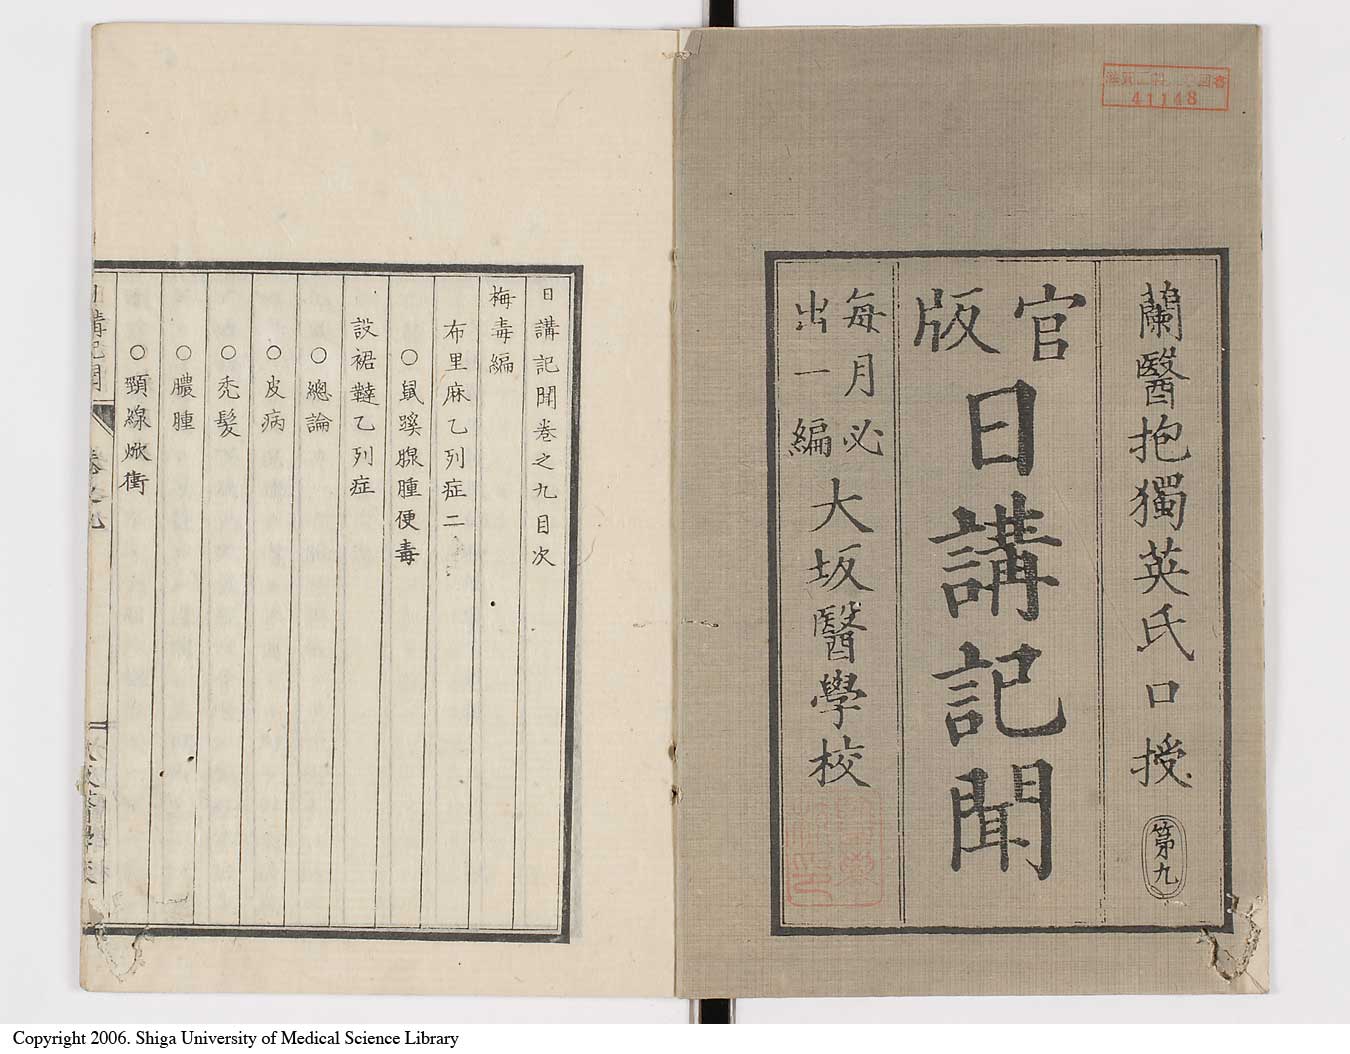 蘭醫抱獨英氏口授
第九
官版
日講記聞
每月必
出一編
大坂醫學校
41148
日講記聞卷之九目次
梅毒編
布里麻乙列症二
○鼠蹊腺腫便毒
設裙韃乙列症
○總論
○皮病
○禿髮
○膿腫
○頸線焮衝
Copyright 2006. Shiga University of Medical Science Library